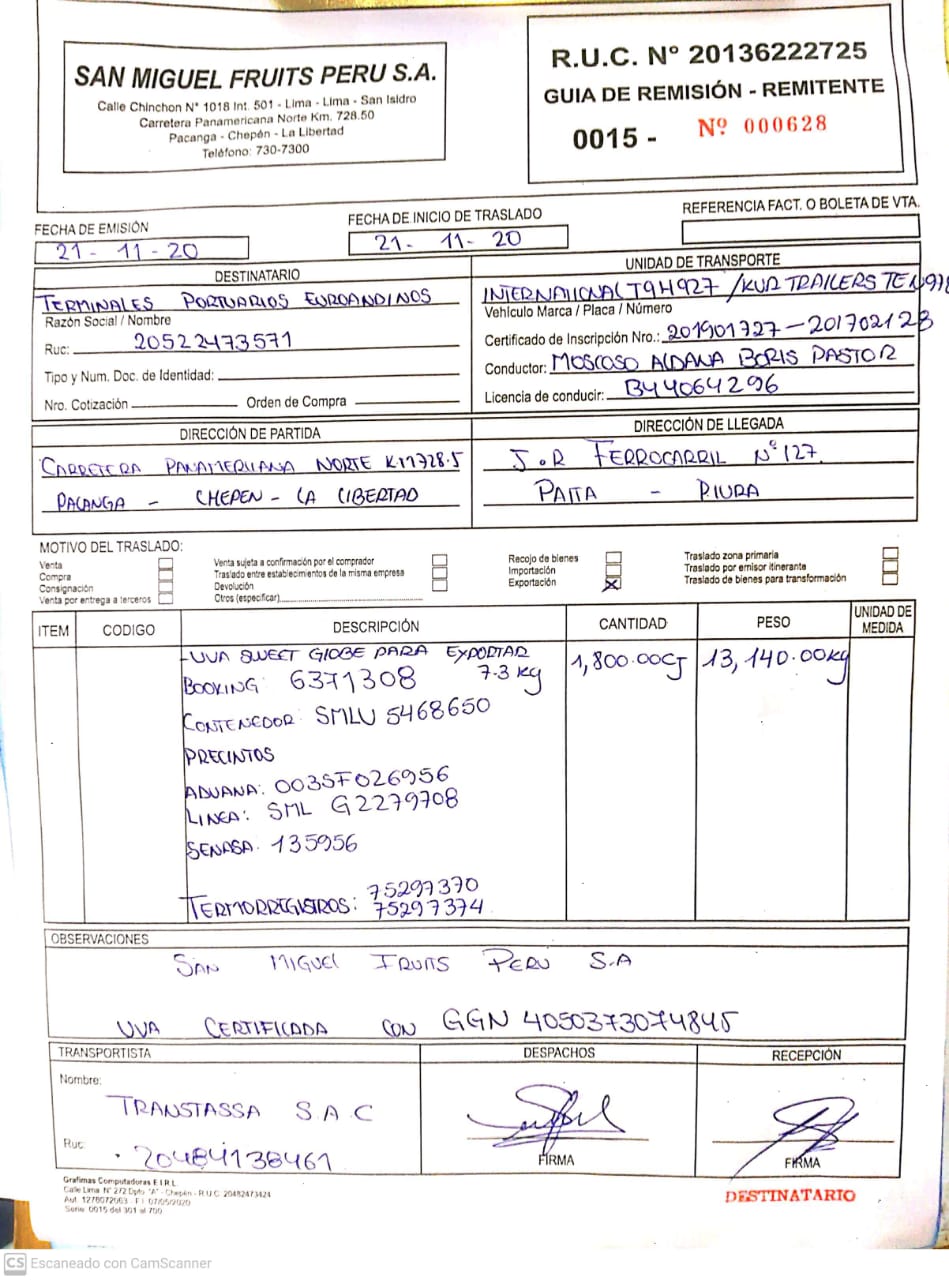 SAN MIGUEL FRUITS PERU S.A.
Calle Chinchon N° 1018 Int. 501 - Lima - Lima - San Isidro
Carretera Panamericana Norte Km. 728.50
Pacanga - Chepén - La Libertad
Teléfono: 730-7300
R.U.C. N° 20136222725
GUIA DE REMISIÓN - REMITENTE
0015 - Nº 000628
FECHA DE EMISIÓN
21 - 11 - 20
FECHA DE INICIO DE TRASLADO
21 - 11 - 20
REFERENCIA FACT. O BOLETA DE VTA.
DESTINATARIO
TERMINALES PORTUARIOS EUROANDINOS
Razón Social / Nombre
Ruc: 20522473571
Tipo y Num. Doc. de Identidad:
Nro. Cotización Orden de Compra
UNIDAD DE TRANSPORTE
INTERNATIONAL T9H927 / KUR TRAILERS TEN978
Vehículo Marca / Placa / Número
Certificado de Inscripción Nro.: 201901727 - 201702123
Conductor: MOSCOSO ALDANA BORIS PASTOR
Licencia de conducir: B44064296
DIRECCIÓN DE PARTIDA
CARRETERA PANAMERICANA NORTE KM728.5
PACANGA - CHEPEN - LA LIBERTAD
DIRECCIÓN DE LLEGADA
J.R FERROCARRIL N° 127.
PAITA - PIURA
MOTIVO DEL TRASLADO:
Venta
Compra
Consignación
Venta por entrega a terceros
Venta sujeta a confirmación por el comprador
Traslado entre establecimientos de la misma empresa
Devolución
Otros (especificar)
Recojo de bienes
Importación
Exportación X
Traslado zona primaria
Traslado por emisor itinerante
Traslado de bienes para transformación
ITEM CODIGO DESCRIPCIÓN CANTIDAD PESO UNIDAD DE MEDIDA
UVA SWEET GLOBE PARA EXPORTAR 1,800.00CJ 13,140.00kg
BOOKING: 6371308 7.3 kg
CONTENEDOR: SMLU 5468650
PRECINTOS
ADUANA: 003SF026956
LINEA: SML G2279708
SENASA: 135956
75297370
TERMORREGISTROS: 75297374
OBSERVACIONES
SAN MIGUEL FRUITS PERU S.A
UVA CERTIFICADA CON GGN 4050373074845
TRANSPORTISTA
Nombre:
TRANSTASSA S.A.C
Ruc: 20484138461
DESPACHOS
FIRMA
RECEPCIÓN
FIRMA
Grafimas Computadoras E.I.R.L.
Calle Lima N° 272 Dpto. "A" - Chepén - R.U.C. 20482473424
Aut. 1278072063 - F.I. 07/05/2020
Serie: 0015 del 301 al 700
DESTINATARIO
CS Escaneado con CamScanner